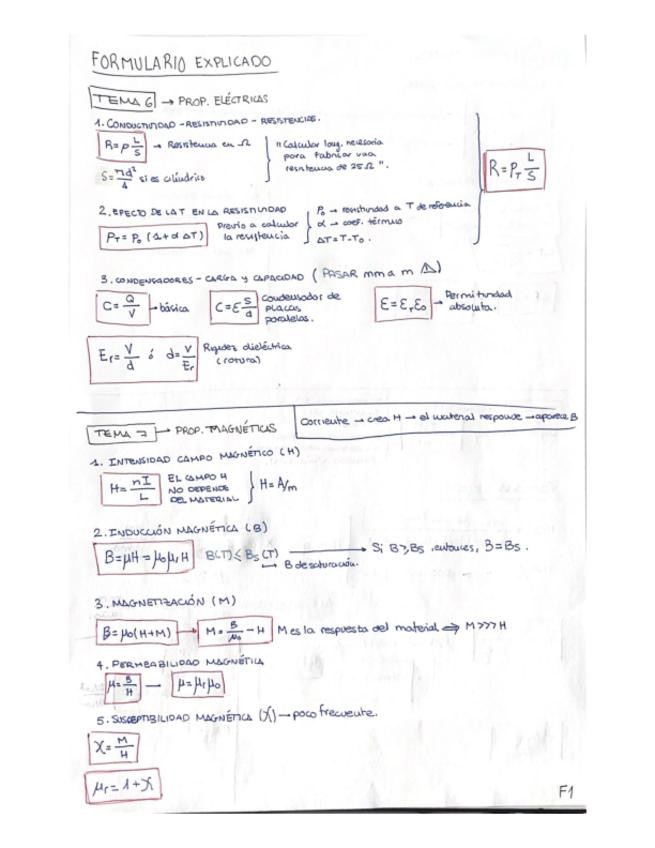 FORMULARIO EXPLICADO
TEMA 6 → PROP. ELÉCTRICAS
1. CONDUCTIVIDAD - RESISTIVIDAD - RESISTENCIAS.
R = ρ L/S → Resistencia en Ω
"Calcular long. necesaria para fabricar una resistencia de 25 Ω".
S = πd²/4 si es cilíndrico
R = ρT L/S
2. EFECTO DE LA T EN LA RESISTIVIDAD
ρT = ρ0 (1 + α ΔT)
Previo a calcular la resistencia
ρ0 → resistividad a T de referencia
α → coef. térmico
ΔT = T - T0.
3. CONDENSADORES - CARGA y CAPACIDAD (PASAR mm a m ⚠)
C = Q/V → básica
C = ε S/d Condensador de placas paralelas.
ε = εr ε0 → Permitividad absoluta.
Er = V/d ó d = V/Er Rigidez dieléctrica (rotura)
TEMA 7 → PROP. MAGNÉTICAS
Corriente → crea H → el material responde → aparece B
1. INTENSIDAD CAMPO MAGNÉTICO (H)
H = nI/L EL CAMPO H NO DEPENDE DEL MATERIAL } H = A/m
2. INDUCCIÓN MAGNÉTICA (B)
B = μH = μ0 μr H B(T) ≤ Bs (T) → Si B ≥ Bs, entonces, B = Bs.
→ B de saturación.
3. MAGNETIZACIÓN (M)
B = μ0 (H + M) → M = B/μ0 - H M es la respuesta del material ⇒ M >>> H
4. PERMEABILIDAD MAGNÉTICA
μ = B/H — μ = μr μ0
5. SUSCEPTIBILIDAD MAGNÉTICA (χ) → poco frecuente.
χ = M/H
μr = 1 + χ
F1